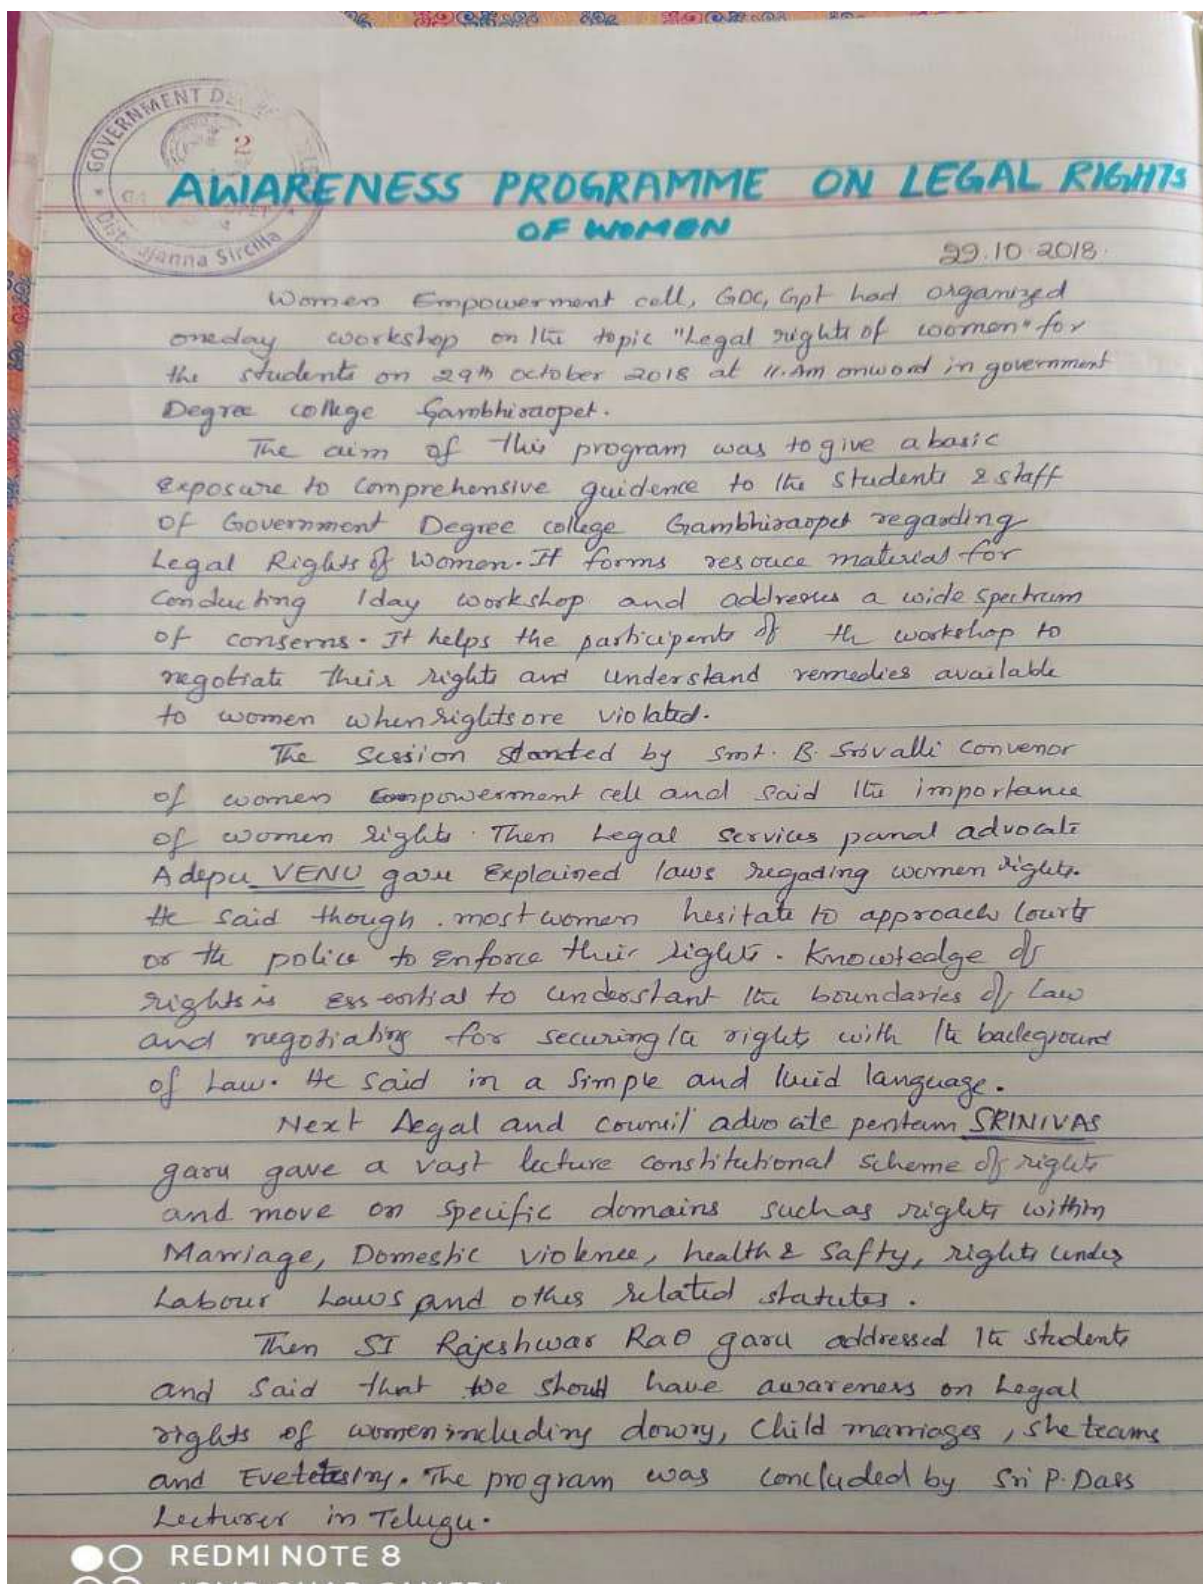 GOVERNMENT DE
2
Dist. Rajanna Sircilla
AWARENESS PROGRAMME ON LEGAL RIGHTS
OF WOMEN
29.10.2018.
Women Empowerment cell, GDC, Gpt had organized
oneday workshop on the topic "Legal rights of women" for
the students on 29th october 2018 at 11.Am onword in government
Degree college Gambhiraopet.
The aim of this program was to give a basic
Exposure to Comprehensive guidence to the Students & staff
of Government Degree college Gambhiraopet regarding
Legal Rights of Women. It forms resouce material for
Conducting 1day workshop and addresses a wide spectrum
of conserns. It helps the participents of th workshop to
negotiate their rights and understand remedies available
to women when rights are violated.
The Session started by Smt. B. Srivalli Convenor
of women Empowerment cell and said the importance
of women rights. Then Legal Services panal advocate
Adepu VENU garu Explained laws regading women rights.
He said though most women hesitate to approach Courts
or the police to Enforce their rights. Knowledge of
rights is Essential to understant the boundaries of Law
and negotiating for securing the rights with the background
of Law. He said in a Simple and luid language.
Next Legal and council advocate pentam SRINIVAS
garu gave a vast lecture constitutional scheme of rights
and move on specific domains such as rights within
Marriage, Domestic violence, health & Safty, rights under
Labour Laws and other related statutes.
Then SI Rajeshwar Rao garu addressed the students
and said that we should have awareness on Legal
rights of women including dowry, Child marriages, she teams
and . The program was concluded by Sri P. Dass
Lecturer in Telugu.
REDMI NOTE 8